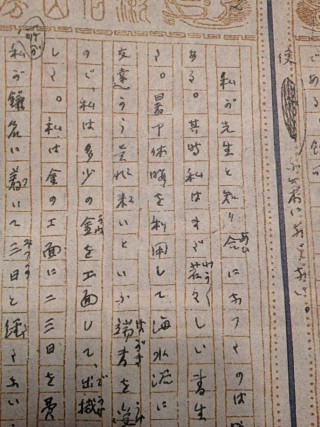 である。
使
な気にならない。
私が先生と知り合になつたのは
ある。其時私はまだ若々しい書生
た。暑中休暇を利用して海水浴に
友達から是非来いといふ端書を受
ので、私は多少の金を工面して、出掛
した。私は金の工面に二三日を費
私が鎌倉に着いて三日と経たない